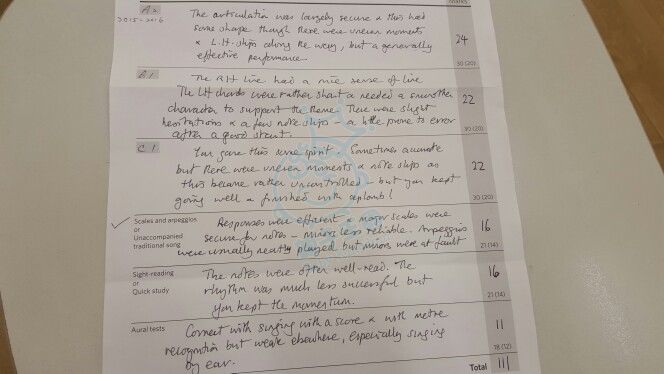 Marks
A2
2015-2016
The articulation was largely secure & this had
some shape though there were uneven moments
& L.H. slips along the way, but a generally
effective performance.
24
30 (20)
B1
The RH line had a nice sense of line
The LH chords were rather short & needed a smoother
character to support the theme. There were slight
hesitations & a few note slips - a little prone to error
after a good start.
22
30 (20)
C1
You gave this some spirit. Sometimes accurate
but there were uneven moments & note slips as
this became rather uncontrolled - but you kept
going well & finished with aplomb!
22
30 (20)
Scales and arpeggios
or
Unaccompanied
traditional song
Responses were efficient & major scales were
secure for notes - minors less reliable. Arpeggios
were usually neatly played but minors were at fault
16
21 (14)
Sight-reading
or
Quick study
The notes were often well-read. The
rhythm was much less successful but
you kept the momentum.
16
21 (14)
Aural tests
Correct with singing with a score & with metre
recognition but weak elsewhere, especially singing
by ear.
11
18 (12)
Total
111